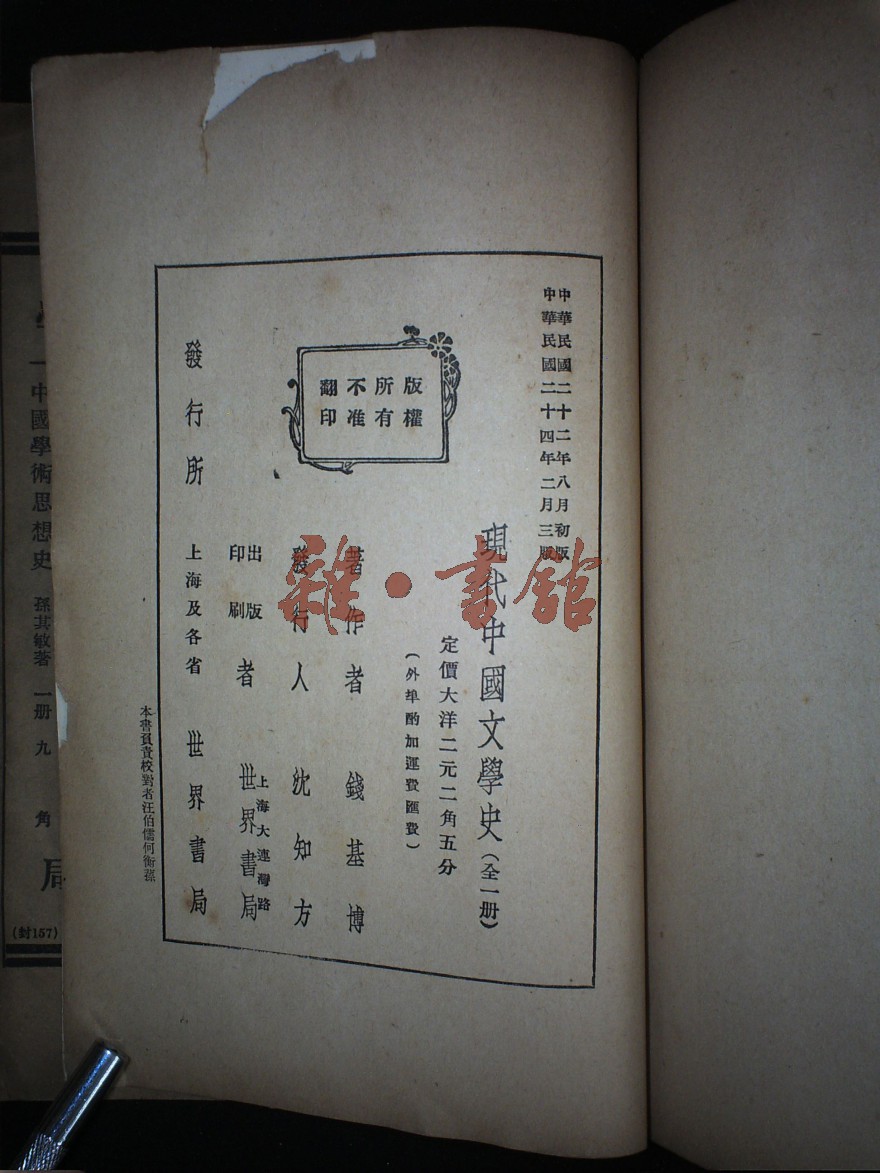 中華民國二十二年八月初版
中華民國二十四年二月三版
版權
所有
不准
翻印
現代中國文學史（全一册）
定價大洋二元二角五分
（外埠酌加運費匯費）
著作者 錢基博
發行人 沈知方
出版
印刷
者
上海大連灣路
世界書局
發行所 上海及各省 世界書局
本書負責校對者汪伯儒何衡蓀
雜·書館
中國學術思想史 孫其敏著 一册 九角
局
(封157)